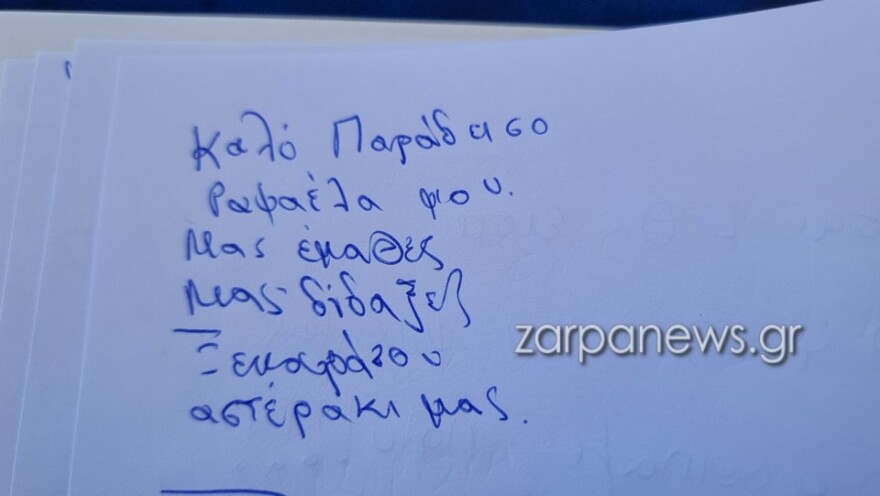 Καλό Παράδεισο
Ραφαέλα μου.
Μας έμαθες
Μας δίδαξες
Ξεκουράσου
αστέρακι μας.
zarpanews.gr